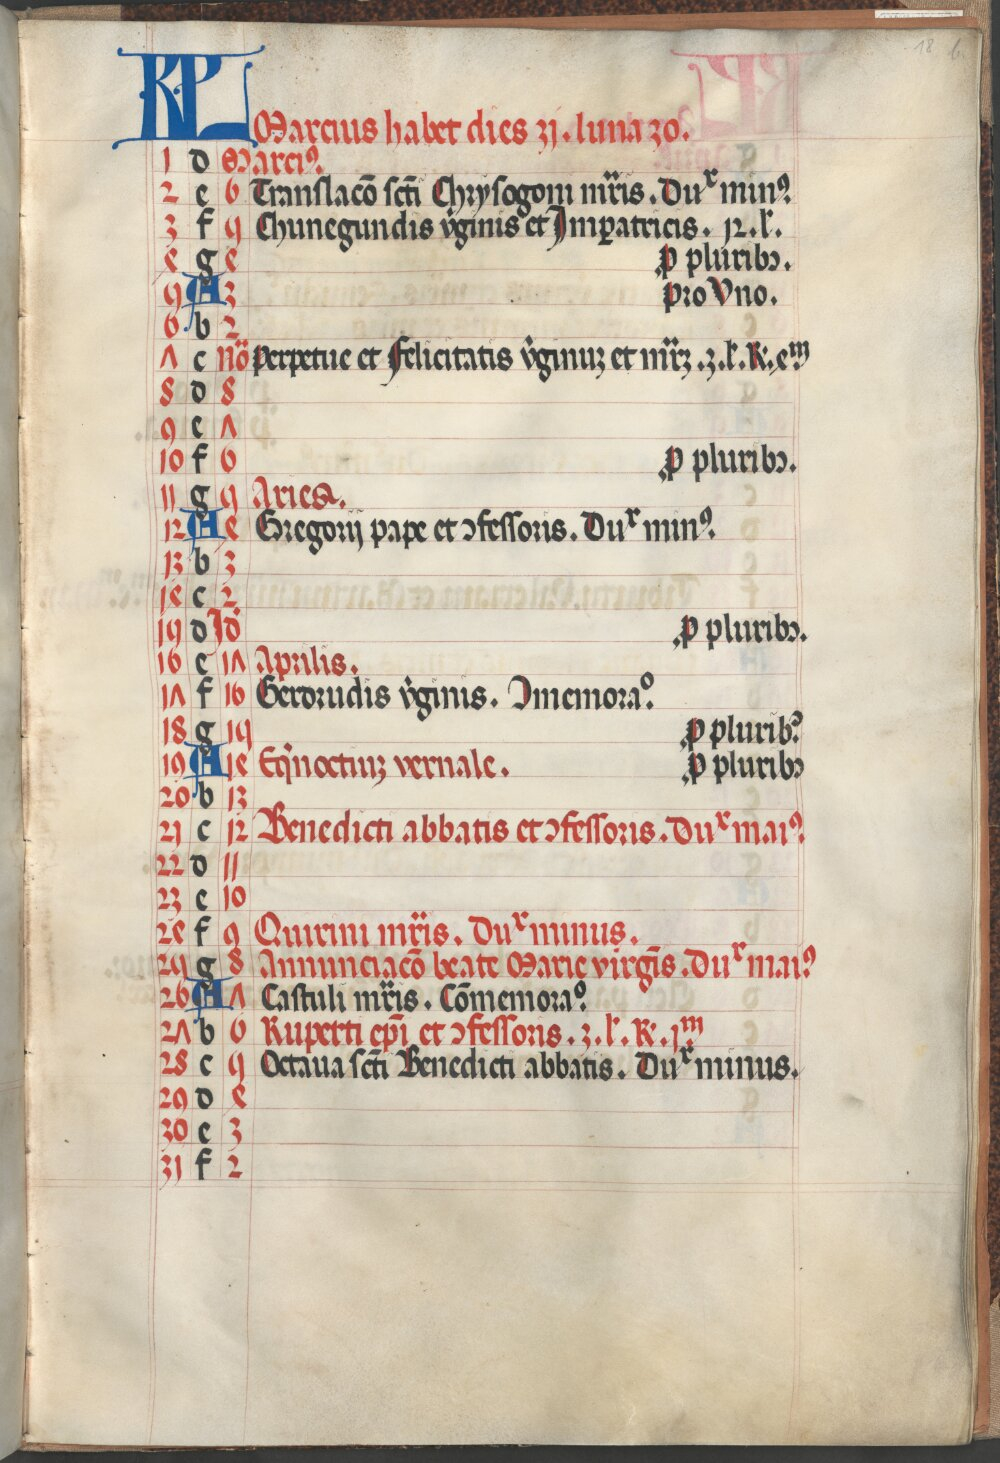 KL Marcius habet dies 31. luna 30.
1 d Marci⁹.
2 e 6 Translacō scti Chrysogoni mr̄is. Duˣ min⁹
3 f 5 Chunegundis v̾ginis et Imꝑatricis. 12. l̄.
4 g 4 ꝓ pluribꝫ.
5 A 3 pro Vno.
6 b 2
7 c Nō Perpetue et Felicitatis v̾ginuꝫ et mr̄ꝫ. 3. l̄. R̄. 4ᵐ
8 d 8
9 e 7
10 f 6 ꝓ pluribꝫ.
11 g 5 Aries.
12 A 4 Gregorij pape et ↄfessoris. Duˣ min⁹.
13 b 3
14 c 2
15 d Id ꝓ pluribꝫ.
16 e 17 Aprilis.
17 f 16 Gerdrudis v̾ginis. Ↄmemoraᵒ.
18 g 15 ꝓ plurib⁹
19 A 14 Eq̄noctiuꝫ vernale. ꝓ pluribꝫ
20 b 13
21 c 12 Benedicti abbatis et ↄfessoris. Duˣ mai⁹.
22 d 11
23 e 10
24 f 9 Quirini mr̄is. Duˣ minus.
25 g 8 Annunciacō beate Marie virgīs. Duˣ mai⁹
26 A 7 Castuli mr̄is. Cōmemoraᵒ.
27 b 6 Ruperti ep̄i et ↄfessoris. 3. l̄. R̄. 1ᵐ
28 c 5 Octaua scti Benedicti abbatis. Duˣ minus.
29 d 4
30 e 3
31 f 2